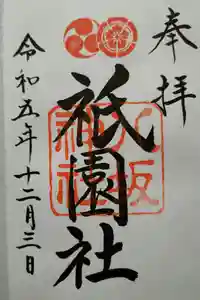 奉拝
祇園社
八坂神社
令和五年十二月三日